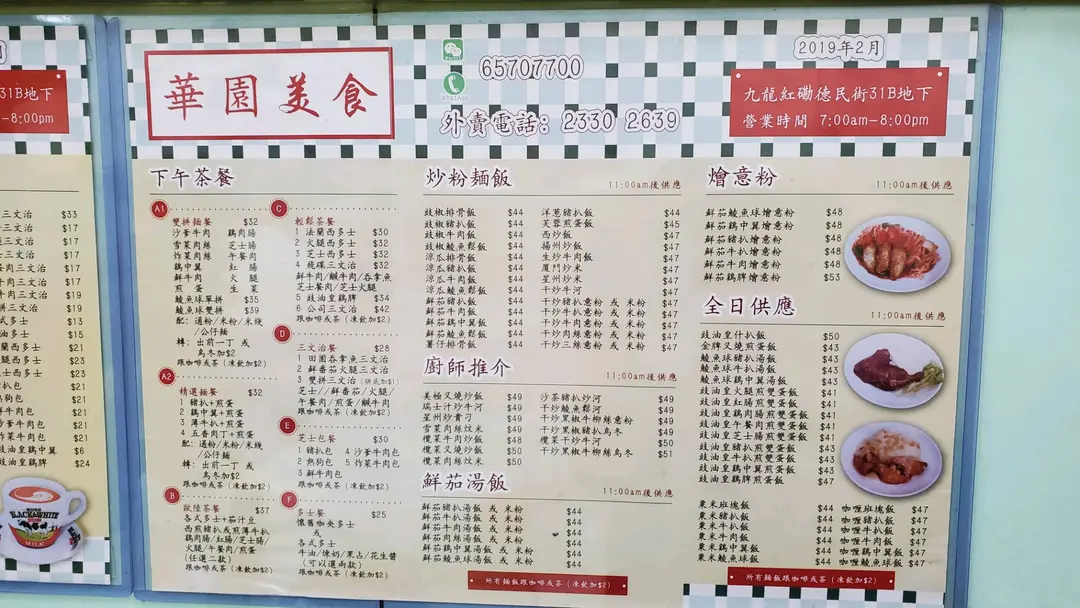 31B地下
-8:00pm
三文治 $33
三文治 $17
三文治 $17
三文治 $17
三文治 $17
肉三文治 $17
三文治 $19
三文治 $19
式多士 $13
油多士 $15
蘭西多士 $21
西多士 $23
西多士 $23
扒包 $21
熱狗包 $21
牛肉包 $21
炸菜牛肉包 $21
豉油皇雞中翼 $6
豉油皇雞髀 $24
BLACK&WHITE
MILK
華園美食
WhatsApp
65707700
外賣電話: 2330 2639
2019年2月
九龍紅磡德民街31B地下
營業時間 7:00am-8:00pm
下午茶餐
A1
雙拼麵餐 $32
沙爹牛肉 鷄肉腸
雪菜肉絲 芝士腸
炸菜肉絲 午餐肉
鷄中翼 紅腸
鮮牛肉 火腿
煎蛋 生菜
鯪魚球單拼 $35
鯪魚球雙拼 $39
配: 通粉/米粉/米線
/公仔麵
轉: 出前一丁 或
烏冬加$2
跟咖啡或茶 (凍飲加$2)
A2
精選麵餐 $32
1 豬扒+煎蛋
2 鷄中翼+煎蛋
3 薄牛扒+煎蛋
4 五香肉丁+煎蛋
配: 通粉/米粉/米線
/公仔麵
轉: 出前一丁 或
烏冬加$2
跟咖啡或茶 (凍飲加$2)
B
歐陸茶餐 $37
各式多士+茄汁豆
西煎豬扒或煎薄牛扒
鷄肉腸/紅腸/芝士腸/
火腿/午餐肉/煎蛋
(任選二款)
跟咖啡或茶 (凍飲加$2)
C
輕鬆茶餐
1 法蘭西多士 $30
2 火腿西多士 $32
3 芝士西多士 $32
4 飛碟三文治 $32
鮮牛肉/鹹牛肉/吞拿魚
芝士餐肉/芝士火腿
5 豉油皇鷄髀 $34
6 公司三文治 $42
跟咖啡或茶 (凍飲加$2)
D
三文治餐 $28
1 田園吞拿魚三文治
2 鮮番茄火腿三文治
3 雙拼三文治 (烘底加$1)
芝士//鮮番茄/火腿/
午餐肉/煎蛋/鹹牛肉
跟咖啡或茶 (凍飲加$2)
E
芝士包餐 $30
1 豬扒包 4 沙爹牛肉包
2 熱狗包 5 炸菜牛肉包
3 鮮牛肉包
跟咖啡或茶 (凍飲加$2)
F
多士餐 $25
懷舊咖央多士
或
各式多士
牛油/煉奶/果占/花生醬
(可以選兩款)
跟咖啡或茶 (凍飲加$2)
炒粉麵飯 11:00am後供應
豉椒排骨飯 $44
豉椒豬扒飯 $44
豉椒牛肉飯 $44
豉椒鯪魚鬆飯 $44
涼瓜排骨飯 $44
涼瓜豬扒飯 $44
涼瓜牛肉飯 $44
涼瓜鯪魚鬆飯 $44
鮮茄豬扒飯 $44
鮮茄牛肉飯 $44
鮮茄鷄中翼飯 $44
鮮茄鯪魚鬆飯 $44
薯仔排骨飯 $44
洋葱豬扒飯 $44
芙蓉煎蛋飯 $45
西炒飯 $47
揚州炒飯 $47
生炒牛肉飯 $47
廈門炒米 $47
星州炒米 $47
干炒牛河 $47
干炒豬扒意粉 或 米粉 $47
干炒牛扒意粉 或 米粉 $47
干炒牛肉意粉 或 米粉 $47
干炒肉絲意粉 或 米粉 $47
干炒三絲意粉 或 米粉 $47
廚師推介 11:00am後供應
美極叉燒炒飯 $49
瑞士汁炒牛河 $49
星州炒貴刁 $49
雪菜肉絲炆米 $49
欖菜肉碎炒飯 $48
欖菜叉燒炒飯 $50
欖菜肉絲炆米 $50
沙茶豬扒炒河 $49
干炒鯪魚鬆河 $49
干炒黑椒牛柳絲意粉 $49
干炒黑椒豬扒烏冬 $49
欖菜干炒牛河 $50
干炒黑椒牛柳絲烏冬 $51
鮮茄湯飯 11:00am後供應
鮮茄豬扒湯飯 或 米粉 $44
鮮茄牛扒湯飯 或 米粉 $44
鮮茄牛肉湯飯 或 米粉 $44
鮮茄肉絲湯飯 或 米粉 $44
鮮茄鷄中翼湯飯 或 米粉 $44
鮮茄鯪魚球湯飯 或 米粉 $44
所有麵飯跟咖啡或茶 (凍飲加$2)
燴意粉 11:00am後供應
鮮茄鯪魚球燴意粉 $48
鮮茄鷄中翼燴意粉 $48
鮮茄豬扒燴意粉 $48
鮮茄牛扒燴意粉 $48
鮮茄牛肉燴意粉 $48
鮮茄鷄髀燴意粉 $53
全日供應 11:00am後供應
豉油皇什扒飯 $50
金牌叉燒煎蛋飯 $43
鯪魚球豬扒湯飯 $43
鯪魚球牛扒湯飯 $43
鯪魚球鷄中翼湯飯 $43
豉油皇火腿煎雙蛋飯 $41
豉油皇紅腸煎雙蛋飯 $41
豉油皇鷄肉腸煎雙蛋飯 $41
豉油皇午餐肉煎雙蛋飯 $41
豉油皇芝士腸煎雙蛋飯 $41
豉油皇豬扒煎雙蛋飯 $43
豉油皇牛扒煎雙蛋飯 $43
豉油皇鷄中翼煎蛋飯 $43
豉油皇鷄髀煎蛋飯 $47
粟米班塊飯 $44 咖喱班塊飯 $47
粟米豬扒飯 $44 咖喱豬扒飯 $47
粟米牛扒飯 $44 咖喱牛扒飯 $47
粟米牛肉飯 $44 咖喱牛肉飯 $47
粟米鷄中翼飯 $44 咖喱鷄中翼飯 $47
粟米鯪魚球飯 $44 咖喱鯪魚球飯 $47
所有麵飯跟咖啡或茶 (凍飲加$2)